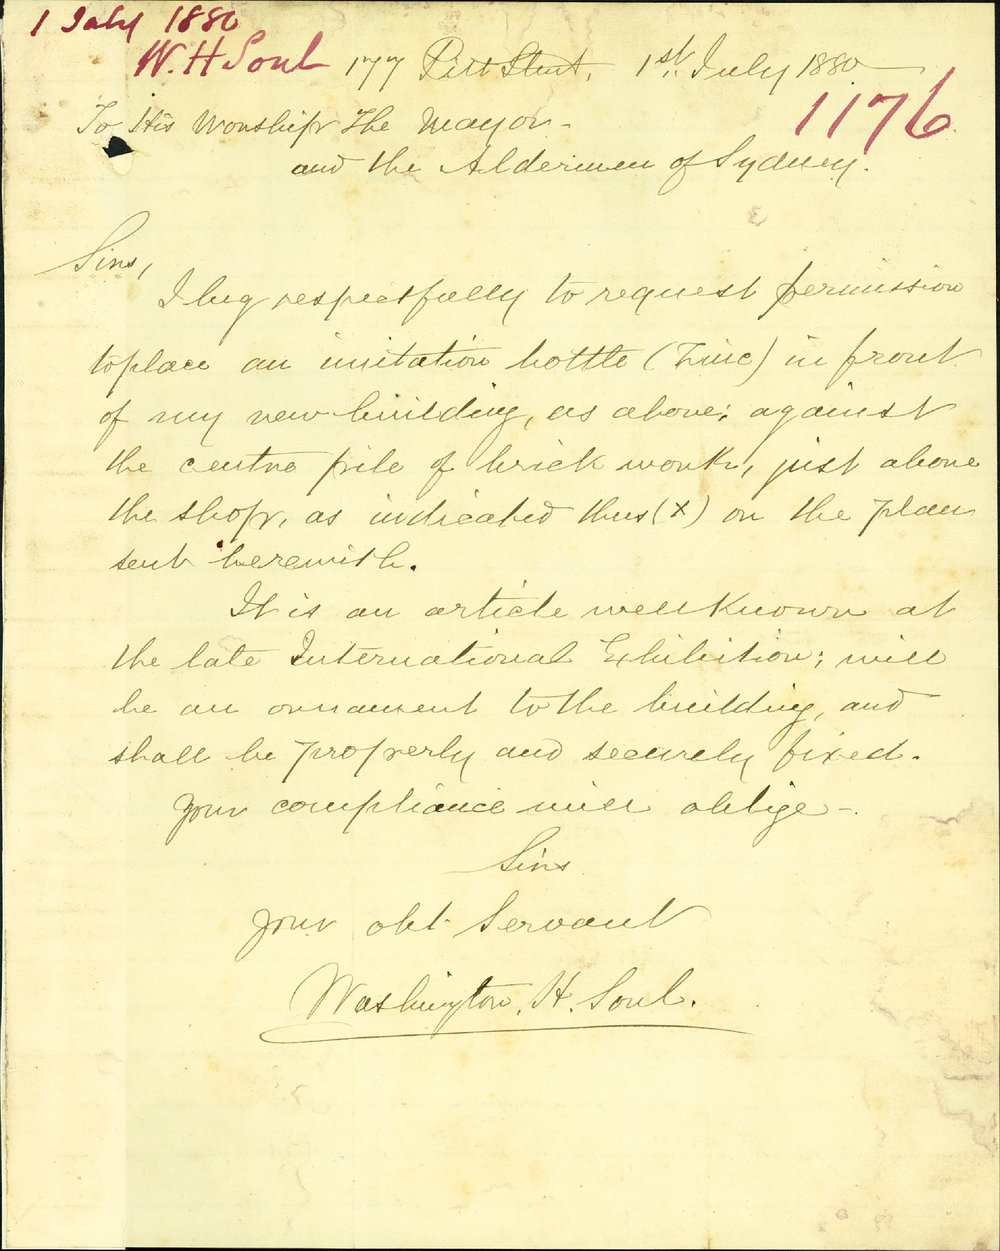 1 July 1880
W. H Soul 177 Pitt Street, 1st. July 1880
1176
To His Worship The Mayor -
and the Aldermen of Sydney.
Sirs,
I beg respectfully to request permission
to place an imitation bottle (Zinc) in front
of my new building, as above; against
the centre pile of brick work, just above
the shop, as indicated thus (x) on the plan
sent herewith.
It is an article well known at
the late International Exhibition; will
be an ornament to the building, and
shall be properly and securely fixed.
Your compliance will oblige -
Sirs
Your obt. Servant
Washington. H. Soul.